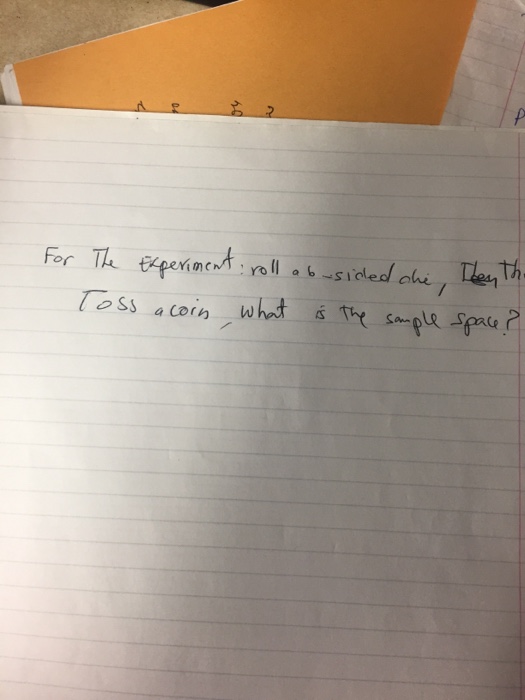 For The Experiment: roll a 6-sided die, Then
Toss a coin, what is the sample space?